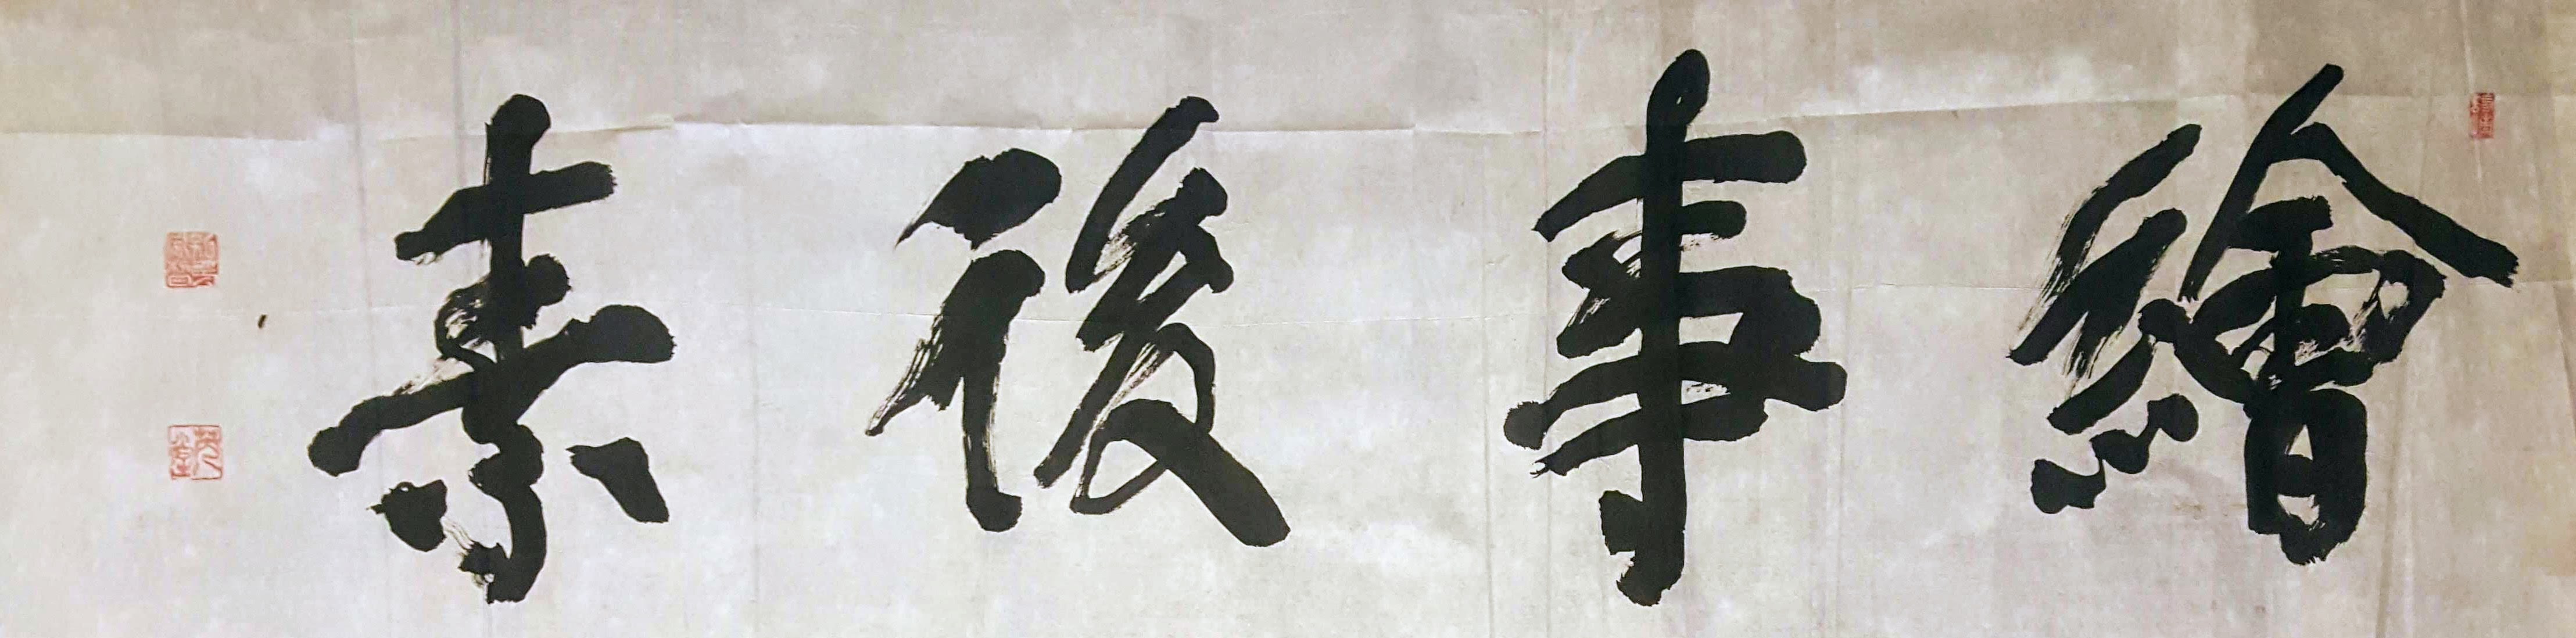 繪事後素